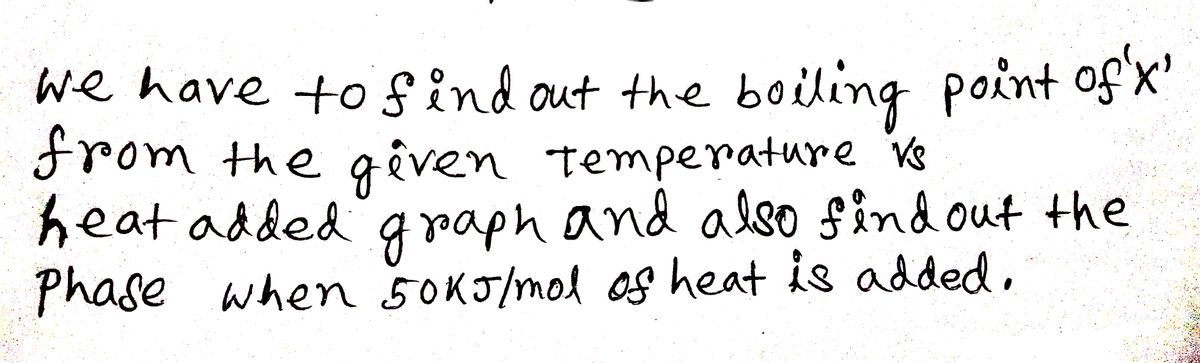 We have to find out the boiling point of 'x'
from the given temperature vs
heat added graph and also find out the
Phase when 50KJ/mol of heat is added.